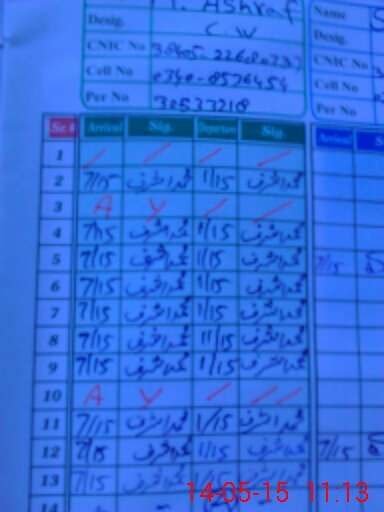 Ashraf
Desig. C.W
CNIC No
Cell No 0340-8576454
Per No 30537218
Name
Desig.
CNIC No
Cell No
Per No
Sr.# Arrival Sig. Departure Sig. Arrival
1
2 7/15 محمد اشرف 1/15 محمد اشرف
3 A
4 7/15 محمد اشرف 1/15 محمد اشرف
5 7/15 محمد اشرف 1/15 محمد اشرف 7/15
6 7/15 محمد اشرف 1/15 محمد اشرف
7 7/15 محمد اشرف 1/15 محمد اشرف
8 7/15 محمد اشرف 11/15 محمد اشرف
9 7/15 محمد اشرف 1/15 محمد اشرف
10 A
11 7/15 محمد اشرف 1/15 محمد اشرف
12 7/15 محمد اشرف 1/15 محمد اشرف 7/15
13 7/15 محمد اشرف محمد اشرف
14
14-05-15 11:13